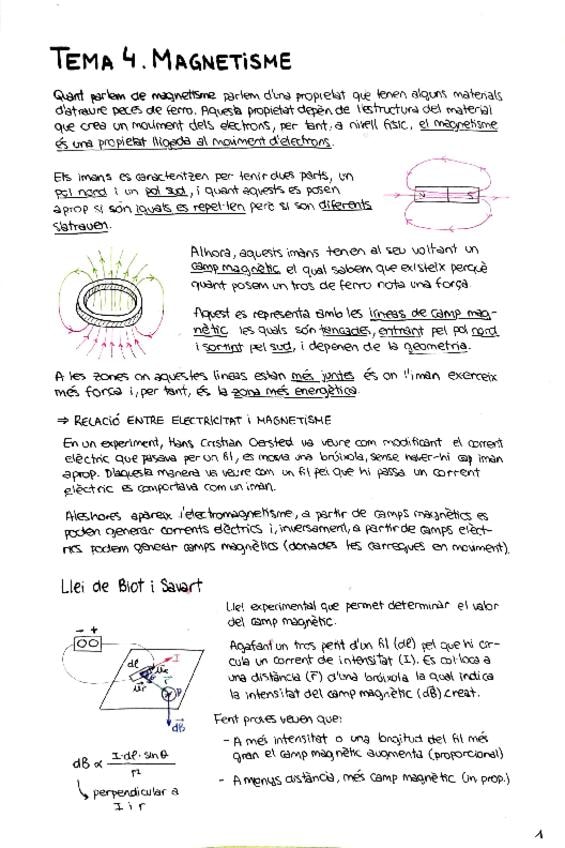 TEMA 4. MAGNETISME
Quant parlem de magnetisme parlem d'una propietat que tenen alguns materials
d'atraure peces de ferro. Aquesta propietat depèn de l'estructura del material
que crea un moviment dels electrons, per tant, a nivell físic, el magnetisme
és una propietat lligada al moviment d'electrons.
Els imans es caracteritzen per tenir dues parts, un
pol nord i un pol sud, i quant aquests es posen
aprop si són iguals es repel·len però si son diferents
s'atrauen.
N S
Alhora, aquests imans tenen al seu voltant un
camp magnètic el qual sabem que existeix perquè
quant posem un tros de ferro nota una força.
Aquest es representa amb les líneas de camp mag-
nètic les quals són tancades, entrant pel pol nord
i sortint pel sud, i depenen de la geometria.
A les zones on aquestes líneas estan més juntes és on l'iman exerceix
més força i, per tant, és la zona més energètica.
⇒ RELACIÓ ENTRE ELECTRICITAT i MAGNETISME
En un experiment, Hans Cristian Oersted va veure com modificant el corrent
elèctric que pasava per un fil, es movia una brúixola, sense haver-hi cap iman
aprop. D'aquesta manera va veure com un fil pel que hi passa un corrent
elèctric es comportava com un iman.
Aleshores apareix l'electromagnetisme, a partir de camps magnètics es
poden generar corrents elèctrics i, inversament, a partir de camps elèct-
rics podem generar camps magnètics (donades les carregues en moviment).
Llei de Biot i Savart
Llei experimental que permet determinar el valor
del camp magnètic.
Agafant un tros petit d'un fil (dl) pel que hi cir-
cula un corrent de intensitat (I). Es col·loca a
una distància (r⃗) d'una brúixola la qual indica
la intensitat del camp magnètic (dB) creat.
- +
dl I
r⃗
P
dB⃗
Fent proves veuen que:
- A més intensitat o una longitud del fil més
gran el camp magnètic augmenta (proporcional)
- A menys distància, més camp magnètic (in prop.)
dB ∝ I·dl·sinθ / r²
↳ perpendicular a
I i r
1